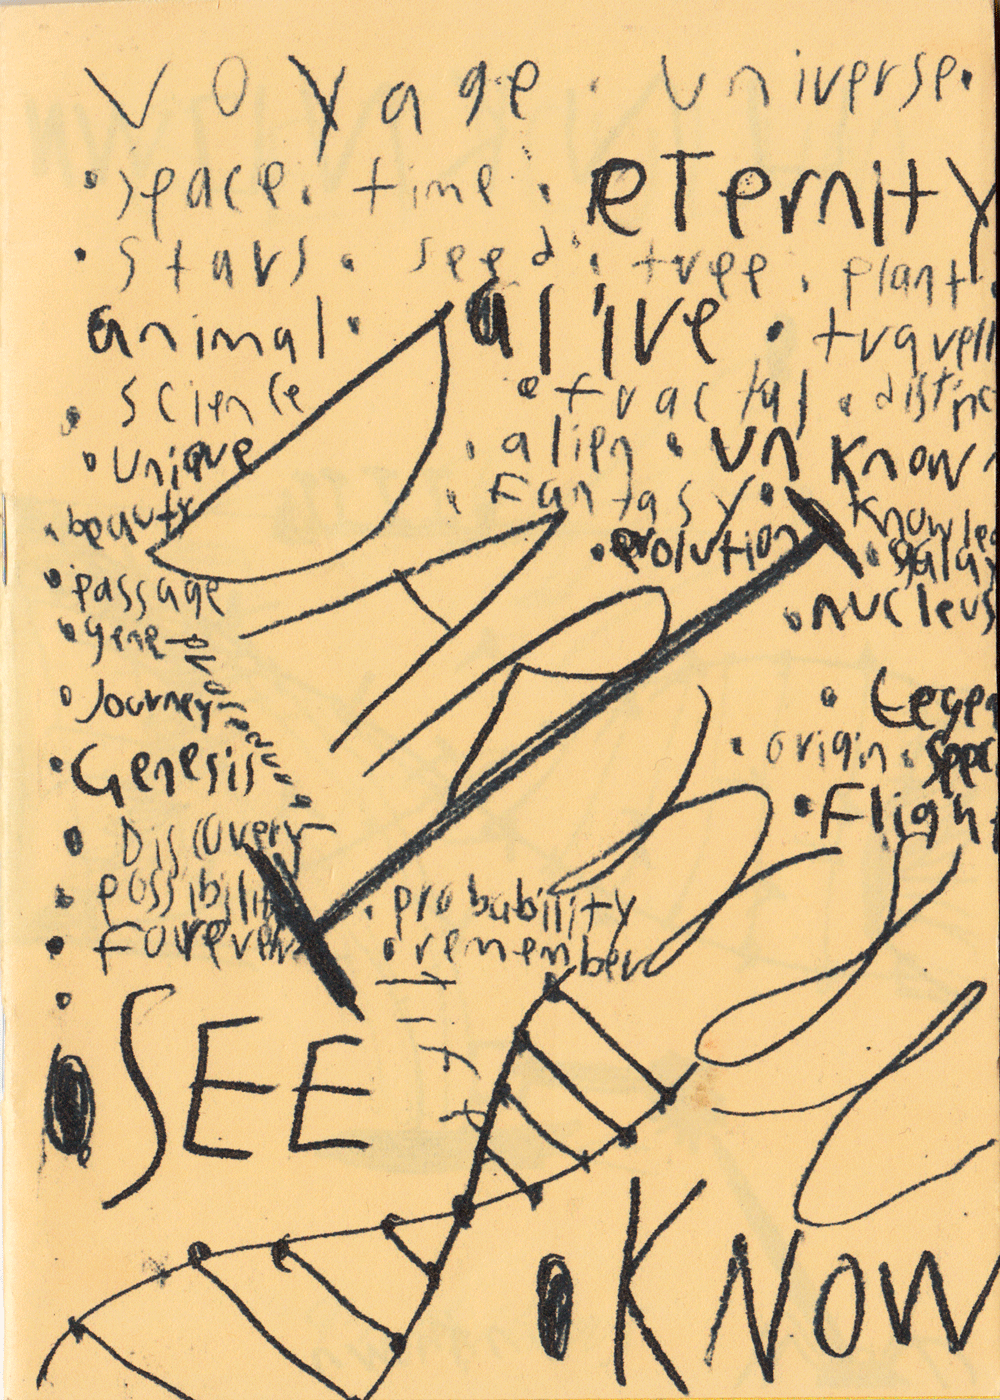 Voyage • universe •
• space • time • eternity
• stars • seed • tree • plant
animal • alive • travell
• science • fractal • distinc
• unique • alien • un know
• beauty • Fantasy • knowle
• evolution • galax
• passage • nucleus
• gene
• Journey • Legen
• Genesis • origin • spec
• Discovery • Fligh
• possibility • probability
• Forever • remember
• SEE
• KNOW